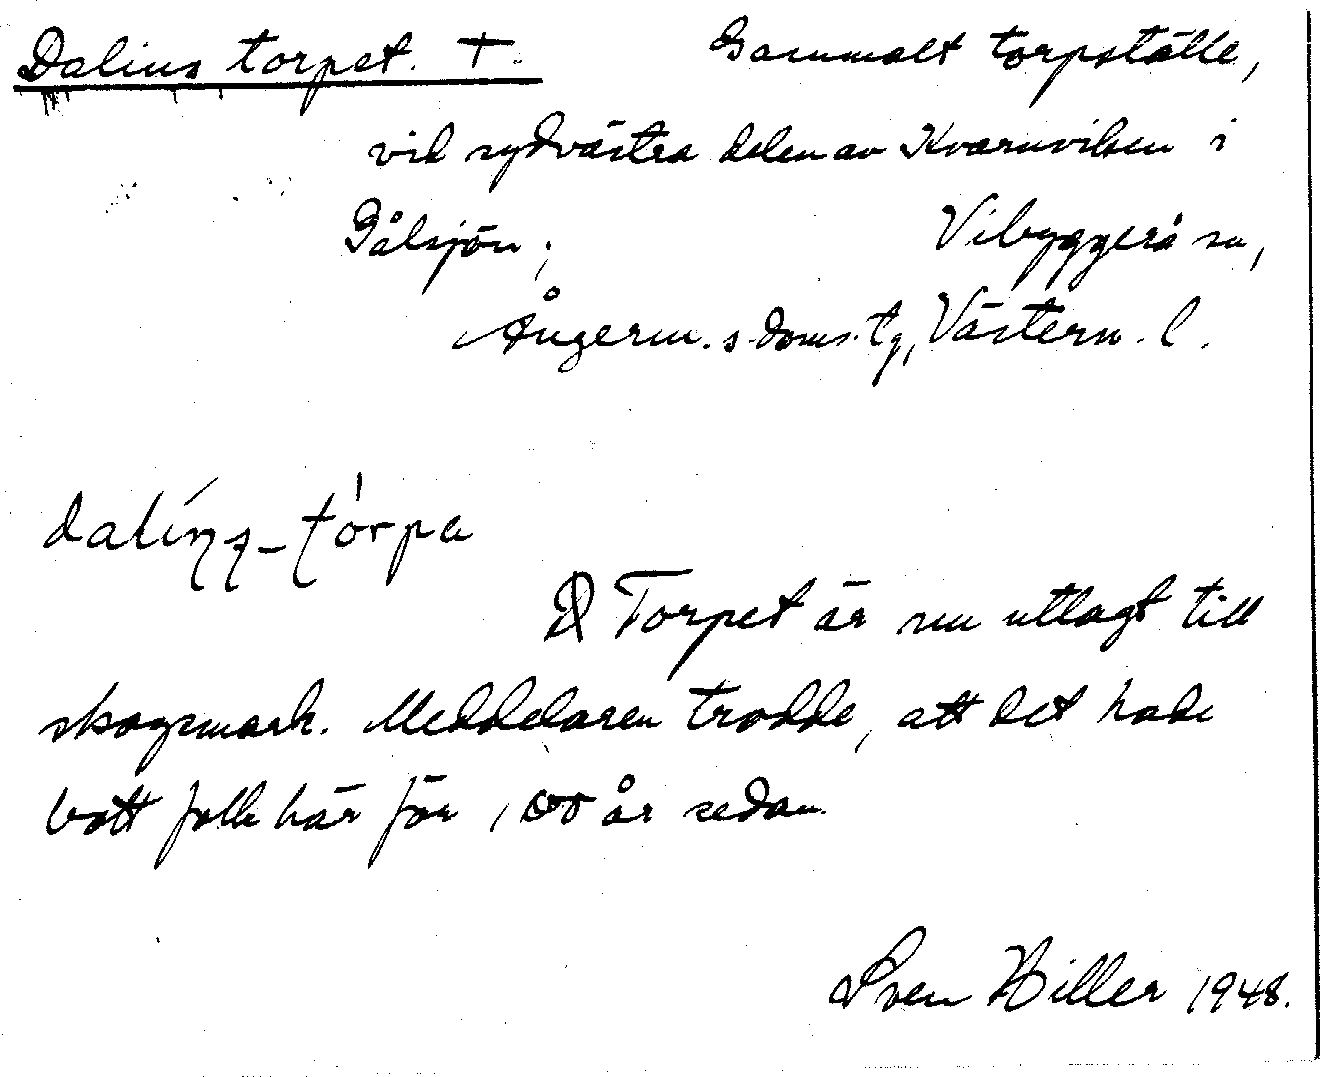 Dalins torpet. † Gammalt torpställe,
vid sydvästra delen av Kvarnviken i
Gålsjön, Vibyggerå sn,
Ångerm. s doms. tg, Västern. l.
torpa
Torpet är nu utlagt till
skogsmark. Meddelaren trodde, att det hade
bott folk här för 100 år sedan.
Sven Hiller 1948.